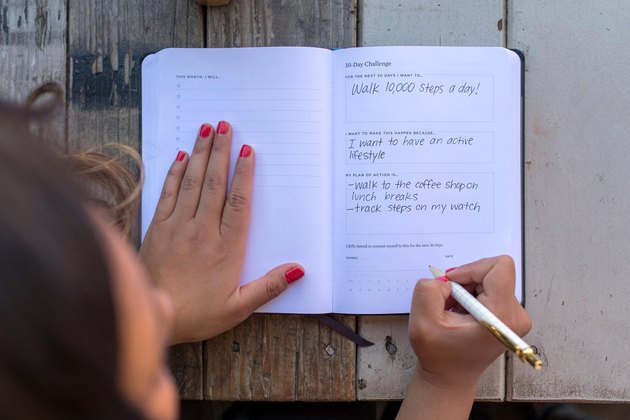 THIS MONTH, I WILL...
30-Day Challenge
FOR THE NEXT 30 DAYS I WANT TO...
Walk 10,000 steps a day!
I WANT TO MAKE THIS HAPPEN BECAUSE...
I want to have an active
lifestyle
MY PLAN OF ACTION IS...
-walk to the coffee shop on
lunch breaks
-track steps on my watch
I fully intend to commit myself to this for the next 30 days.
SIGNED
DATE